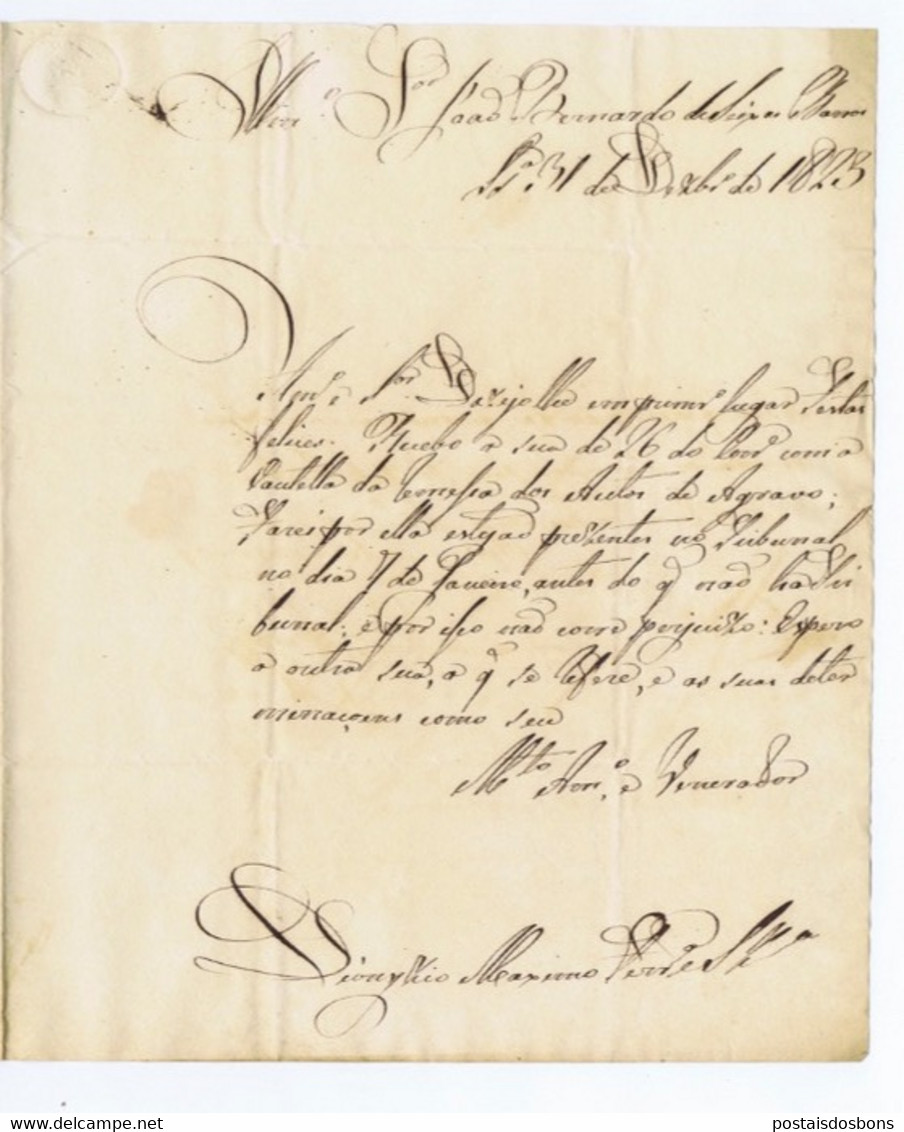 Illm.º Sr. João Bernardo de Seixas Ramos
Lx.ª 31 de Dezbr.º de 1823
Am.º e Sr. Dezejo lhe em primr.º lugar Festas
felices. Recebo a sua de 26 do Corr.e com a
Cautella da remessa dos Autos de Agravo;
Farei por ella estejão prezentes no Tribunal
no dia 7 de Janeiro, antes do q̃ não ha Tri
bunal; e por isso não corre prejuizo: Espero
a outra sua, a q̃ se refere, e as suas deter
minaçoens como seu
M.to Am.º e Venerador
Dionyzio Maximo
postaisdosbons